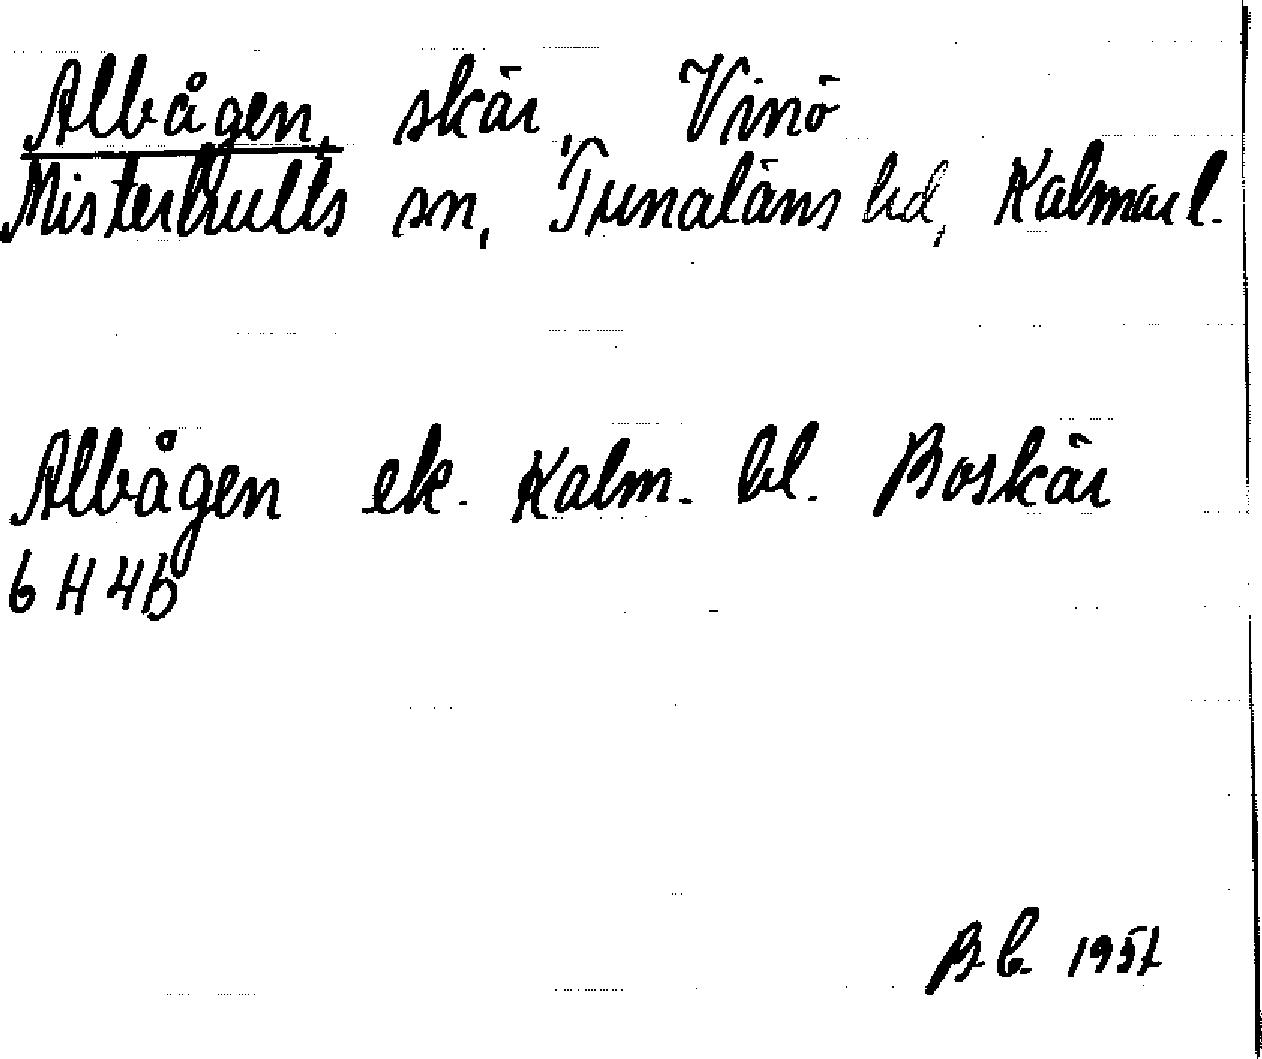 Albågen, skär, Vinö
Misterhults sn, Tunaläns hd, Kalmar l.
Albågen ek. Kalm. bl. Boskär
6 H 4b
B.b. 1951